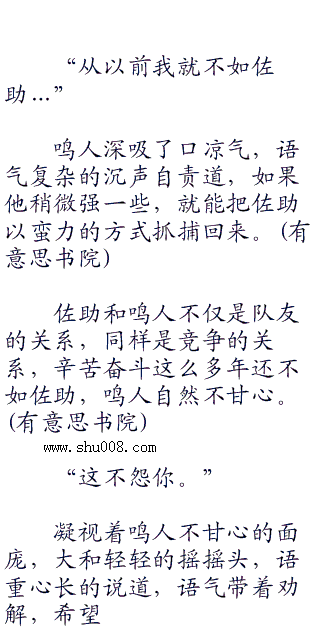 “从以前我就不如佐
助…”
鸣人深吸了口凉气，语
气复杂的沉声自责道，如果
他稍微强一些，就能把佐助
以蛮力的方式抓捕回来。(有
意思书院)
佐助和鸣人不仅是队友
的关系，同样是竞争的关
系，辛苦奋斗这么多年还不
如佐助，鸣人自然不甘心。
(有意思书院)
www.shu008.com
“这不怨你。”
凝视着鸣人不甘心的面
庞，大和轻轻的摇摇头，语
重心长的说道，语气带着劝
解，希望